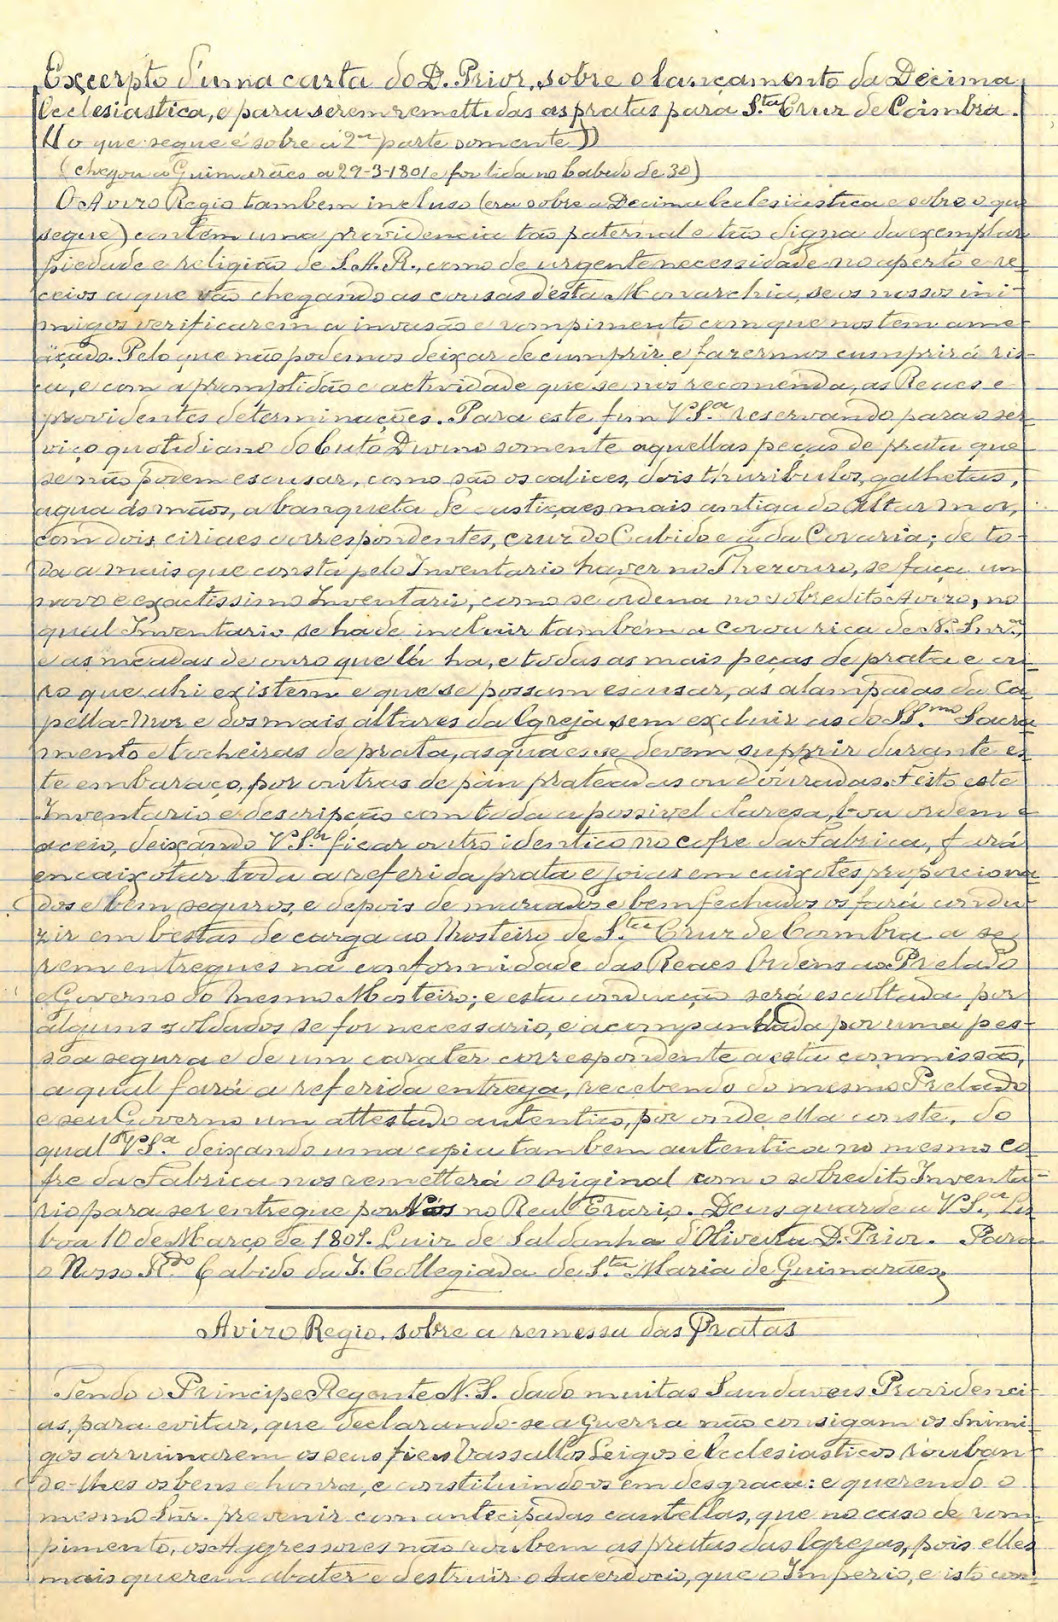 Excerpto d'uma carta do D. Prior, sobre o lançamento da Decima
Ecclesiastica, e para serem remettidas as pratas para S.ta Cruz de Coimbra.
(( o que segue é sobre a 2.ª parte somente ))
(chegou a Guimarães a 29-3-1801 e foi lida no Cabido de 30)
O Aviso Regio tambem incluso (era sobre a Decima Ecclesiastica e sobre o que
segue) contém uma providencia tão paternal e tão digna da exemplar
piedade e religião de S.A.R., como de urgente necessidade no aperto e re-
ceios a que vão chegando as cousas d'esta Monarchia, se os nossos ini-
migos verificarem a invasão e rompimento com que nos tem ame-
açado. Pelo que não podemos deixar de cumprir e fazermos cumprir á ris-
ca, e com a promptidão e actividade que se nos recomenda, as Reaes e
providentes determinações. Para este fim V.S.ª reservando para o ser-
viço quotidiano do Culto Divino somente aquellas peças de prata que
se não podem escusar, como são os calices, dois thuribulos, galhetas,
agua ás mãos, a banqueta de castiçaes mais antiga do Altar mor,
com dois ciriaes correspondentes, cruz do Cabido e a da Coraria; de to-
da a mais que consta pelo Inventario haver no Thezouro, se faça um
novo e exactissimo Inventario, como se ordena no sobredito Aviso, no
qual Inventario se ha de incluir tambem a coroa rica de N. Snr.ª,
e as meadas de ouro que lá ha, e todas as mais peças de prata e ou-
ro que ahi existem e que se possam escusar, as alampadas da Ca-
pella-Mor e dos mais altares da Igreja, sem excluir as do SS.mo Sacra-
mento e tocheiras de prata, as quaes se devem supprir durante es-
te embaraço, por outras de pau prateadas ou douradas. Feito este
Inventario e descripção com toda a possivel claresa, boa ordem e
aceio, deixando V.S.ª ficar outro identico no cofre da Fabrica, fará
encaixotar toda a referida prata e joias em caixotes proporciona-
dos e bem seguros, e depois de marcados e bem fechados os fará condu-
zir em bestas de carga ao Mosteiro de S.ta Cruz de Coimbra a se-
rem entregues na conformidade das Reaes Ordens ao Prelado
e Governo do mesmo Mosteiro; e esta conducção será escoltada por
alguns soldados se for necessario, e acompanhada por uma pes-
soa segura e de um carater correspondente a esta commissão,
a qual fará a referida entrega, recebendo do mesmo Prelado
e seu Governo um attestado autentico, por onde ella conste, do
qual V.S.ª deixando uma copia tambem autentica no mesmo co-
fre da Fabrica nos remetterá o original com o sobredito Inventa-
rio para ser entregue por Nós no Real Erario. Deus guarde a V.S.ª Lis-
boa 10 de Março de 1801. Luiz de Saldanha d'Oliveira D. Prior. Para
o Nosso R.do Cabido da I. Collegiada de S.ta Maria de Guimarães
Aviso Regio, sobre a remessa das Pratas
Tendo o Principe Regente N.S. dado muitas Saudaveis Providenci-
as, para evitar, que declarando-se a Guerra não consigam os Inimi-
gos arruinarem os seus fieis Vassallos Leigos e Ecclesiasticos rouban-
do-lhes os bens e honra, e constituindo-os em desgraça: e querendo o
mesmo Snr. prevenir com antecipadas cautellas, que no caso de rom-
pimento, os Aggressores não roubem as pratas das Igrejas, pois elles
mais querem abater e destruir o Sacerdocio, que o Imperio, e isto com